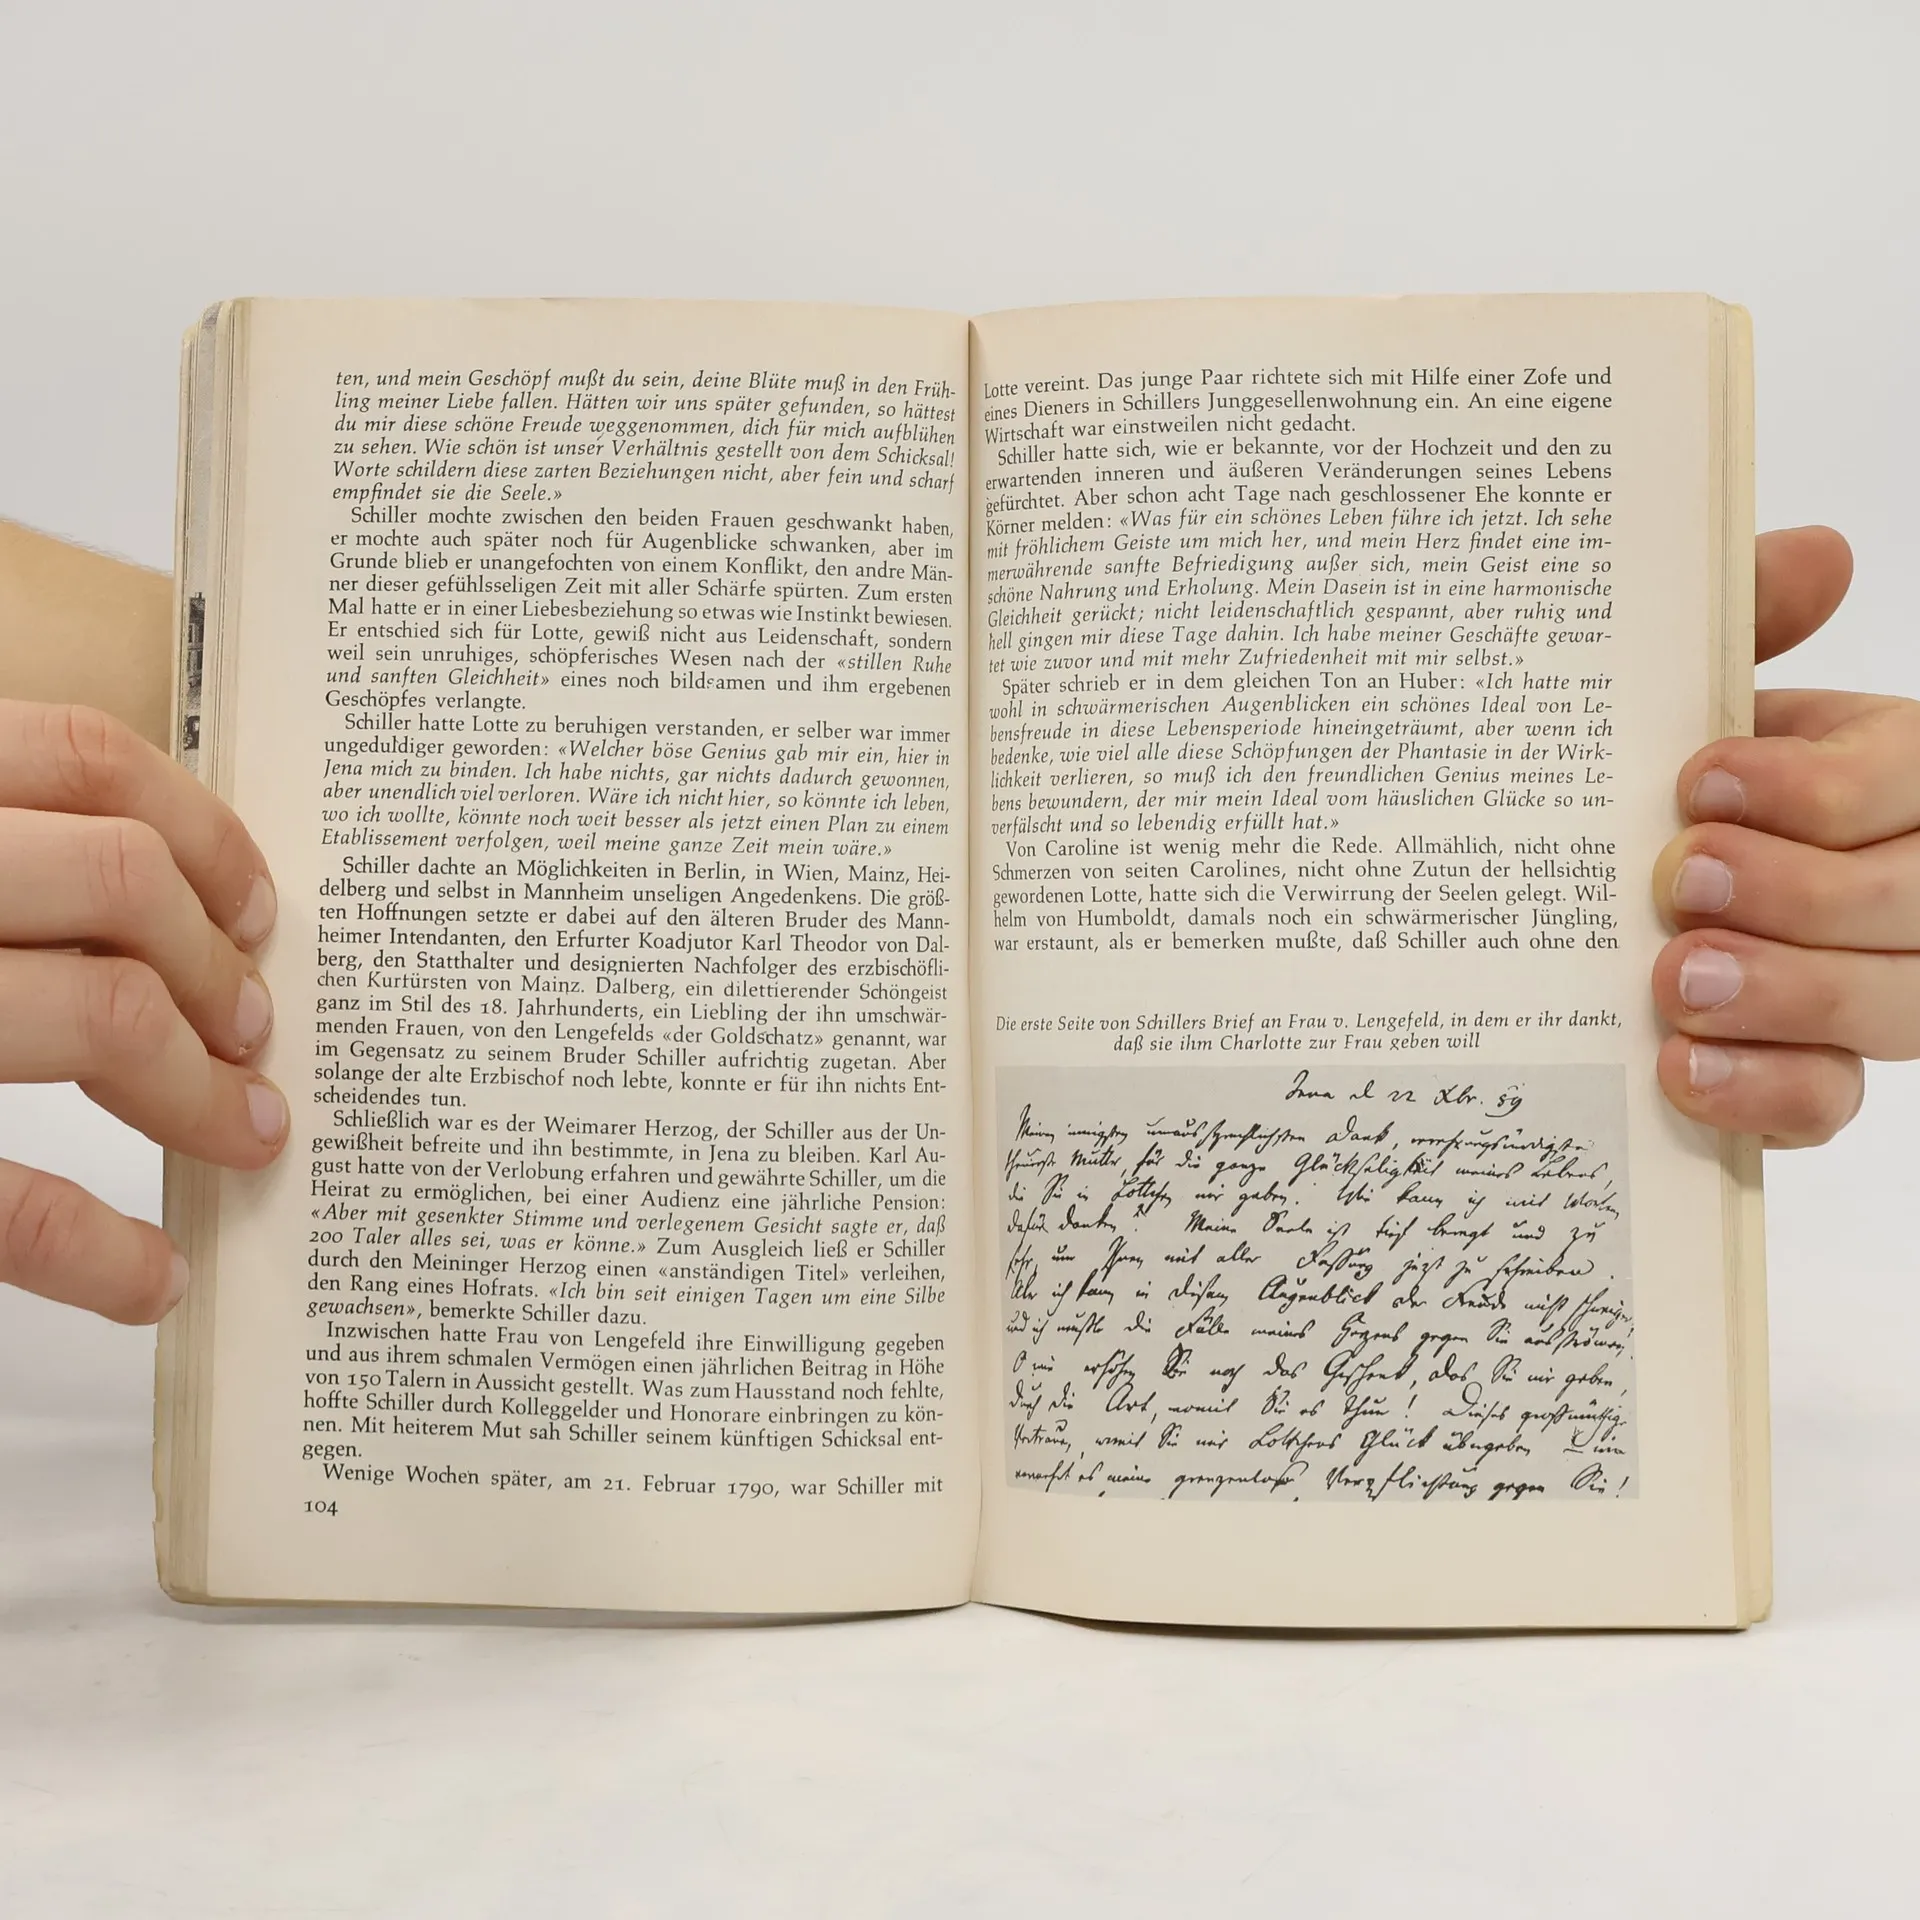 ten, und mein Geschöpf mußt du sein, deine Blüte muß in den Früh-
ling meiner Liebe fallen. Hätten wir uns später gefunden, so hättest
du mir diese schöne Freude weggenommen, dich für mich aufblühen
zu sehen. Wie schön ist unser Verhältnis gestellt von dem Schicksal!
Worte schildern diese zarten Beziehungen nicht, aber fein und scharf
empfindet sie die Seele.»
Schiller mochte zwischen den beiden Frauen geschwankt haben,
er mochte auch später noch für Augenblicke schwanken, aber im
Grunde blieb er unangefochten von einem Konflikt, den andre Män-
ner dieser gefühlsseligen Zeit mit aller Schärfe spürten. Zum ersten
Mal hatte er in einer Liebesbeziehung so etwas wie Instinkt bewiesen.
Er entschied sich für Lotte, gewiß nicht aus Leidenschaft, sondern
weil sein unruhiges, schöpferisches Wesen nach der «stillen Ruhe
und sanften Gleichheit» eines noch bildsamen und ihm ergebenen
Geschöpfes verlangte.
Schiller hatte Lotte zu beruhigen verstanden, er selber war immer
ungeduldiger geworden: «Welcher böse Genius gab mir ein, hier in
Jena mich zu binden. Ich habe nichts, gar nichts dadurch gewonnen,
aber unendlich viel verloren. Wäre ich nicht hier, so könnte ich leben,
wo ich wollte, könnte noch weit besser als jetzt einen Plan zu einem
Etablissement verfolgen, weil meine ganze Zeit mein wäre.»
Schiller dachte an Möglichkeiten in Berlin, in Wien, Mainz, Hei-
delberg und selbst in Mannheim unseligen Angedenkens. Die größ-
ten Hoffnungen setzte er dabei auf den älteren Bruder des Mann-
heimer Intendanten, den Erfurter Koadjutor Karl Theodor von Dal-
berg, den Statthalter und designierten Nachfolger des erzbischöfli-
chen Kurfürsten von Mainz. Dalberg, ein dilettierender Schöngeist
ganz im Stil des 18. Jahrhunderts, ein Liebling der ihn umschwär-
menden Frauen, von den Lengefelds «der Goldschatz» genannt, war
im Gegensatz zu seinem Bruder Schiller aufrichtig zugetan. Aber
solange der alte Erzbischof noch lebte, konnte er für ihn nichts Ent-
scheidendes tun.
Schließlich war es der Weimarer Herzog, der Schiller aus der Un-
gewißheit befreite und ihn bestimmte, in Jena zu bleiben. Karl Au-
gust hatte von der Verlobung erfahren und gewährte Schiller, um die
Heirat zu ermöglichen, bei einer Audienz eine jährliche Pension:
«Aber mit gesenkter Stimme und verlegenem Gesicht sagte er, daß
200 Taler alles sei, was er könne.» Zum Ausgleich ließ er Schiller
durch den Meininger Herzog einen «anständigen Titel» verleihen,
den Rang eines Hofrats. «Ich bin seit einigen Tagen um eine Silbe
gewachsen», bemerkte Schiller dazu.
Inzwischen hatte Frau von Lengefeld ihre Einwilligung gegeben
und aus ihrem schmalen Vermögen einen jährlichen Beitrag in Höhe
von 150 Talern in Aussicht gestellt. Was zum Hausstand noch fehlte,
hoffte Schiller durch Kolleggelder und Honorare einbringen zu kön-
nen. Mit heiterem Mut sah Schiller seinem künftigen Schicksal ent-
gegen.
Wenige Wochen später, am 21. Februar 1790, war Schiller mit
104
Lotte vereint. Das junge Paar richtete sich mit Hilfe einer Zofe und
eines Dieners in Schillers Junggesellenwohnung ein. An eine eigene
Wirtschaft war einstweilen nicht gedacht.
Schiller hatte sich, wie er bekannte, vor der Hochzeit und den zu
erwartenden inneren und äußeren Veränderungen seines Lebens
gefürchtet. Aber schon acht Tage nach geschlossener Ehe konnte er
Körner melden: «Was für ein schönes Leben führe ich jetzt. Ich sehe
mit fröhlichem Geiste um mich her, und mein Herz findet eine im-
merwährende sanfte Befriedigung außer sich, mein Geist eine so
schöne Nahrung und Erholung. Mein Dasein ist in eine harmonische
Gleichheit gerückt; nicht leidenschaftlich gespannt, aber ruhig und
hell gingen mir diese Tage dahin. Ich habe meiner Geschäfte gewar-
tet wie zuvor und mit mehr Zufriedenheit mit mir selbst.»
Später schrieb er in dem gleichen Ton an Huber: «Ich hatte mir
wohl in schwärmerischen Augenblicken ein schönes Ideal von Le-
bensfreude in diese Lebensperiode hineingeträumt, aber wenn ich
bedenke, wie viel alle diese Schöpfungen der Phantasie in der Wirk-
lichkeit verlieren, so muß ich den freundlichen Genius meines Le-
bens bewundern, der mir mein Ideal vom häuslichen Glücke so un-
verfälscht und so lebendig erfüllt hat.»
Von Caroline ist wenig mehr die Rede. Allmählich, nicht ohne
Schmerzen von seiten Carolines, nicht ohne Zutun der hellsichtig
gewordenen Lotte, hatte sich die Verwirrung der Seelen gelegt. Wil-
helm von Humboldt, damals noch ein schwärmerischer Jüngling,
war erstaunt, als er bemerken mußte, daß Schiller auch ohne den
Die erste Seite von Schillers Brief an Frau v. Lengefeld, in dem er ihr dankt,
daß sie ihm Charlotte zur Frau geben will
Jena d 22 Xbr. 89
Meinen innigsten unaussprechlichsten Dank, verehrungswürdigste
theuerste Mutter, für die ganze Glückseligkeit meines Lebens,
die Sie in Lottchen mir geben. Wie kann ich mit Worten
dafür danken? Meine Seele ist tief bewegt und zu
sehr, um Ihnen mit aller Fassung jezt zu schreiben.
Aber ich kann in diesem Augenblick der Freude nicht schweigen
und ich mußte die Fülle meines Herzens gegen Sie ausströmen.
O wie erhöhen Sie noch das Geschenk, das Sie mir geben,
durch die Art, womit Sie es thun! Dieses großmüthige
Vertrauen, womit Sie mir Lottchens Glück übergeben wie
vermehrt es meine grenzenlose Verpflichtung gegen Sie!